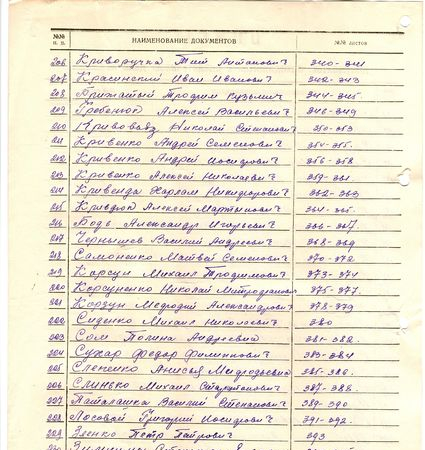 №№ п. п. НАИМЕНОВАНИЕ ДОКУМЕНТОВ №№ листов
206. Криворучка Тит Антонович 340-341
207 Красинский Иван Иванович 342-343
208 Прижатый Трофим Кузьмич 344-345.
209 Гребенюк Алексей Васильевич 346-349
210 Николай Степанович 350-353
211 Кривенко Андрей Семенович 354-355.
212 Кривенко Андрей Иосифович 356-358
213 Кривенко Алексей Николаевич 359-361.
214 Кривенда Харлам Никифорович 362-363
215 Кривдюк Алексей Мартынович 364-365.
216 Бодь Александр Игоревич 366-367.
217 Чернышев Василий Андреевич 368-369
218 Самоненко Матвей Семенович 370-372
219 Корсун Михаил Трофимович 373-374
220 Корсуненко Николай Митрофанович 375-377.
221 Корзун Мефодий Александрович 378-379
222 Сиденко Михаил Николаевич 380
223 Сом Полина Андреевна 381-382.
224 Сухар Федор Филиппович 383-384
225 Слепенко Анисья Мефодьевна 385-386
226 Слинько Михаил 387-388.
227 Паталашка Василий Степанович 389-390
228 Лосовой Григорий Иосифович 391-392.
229 Зленко Петр 393
230